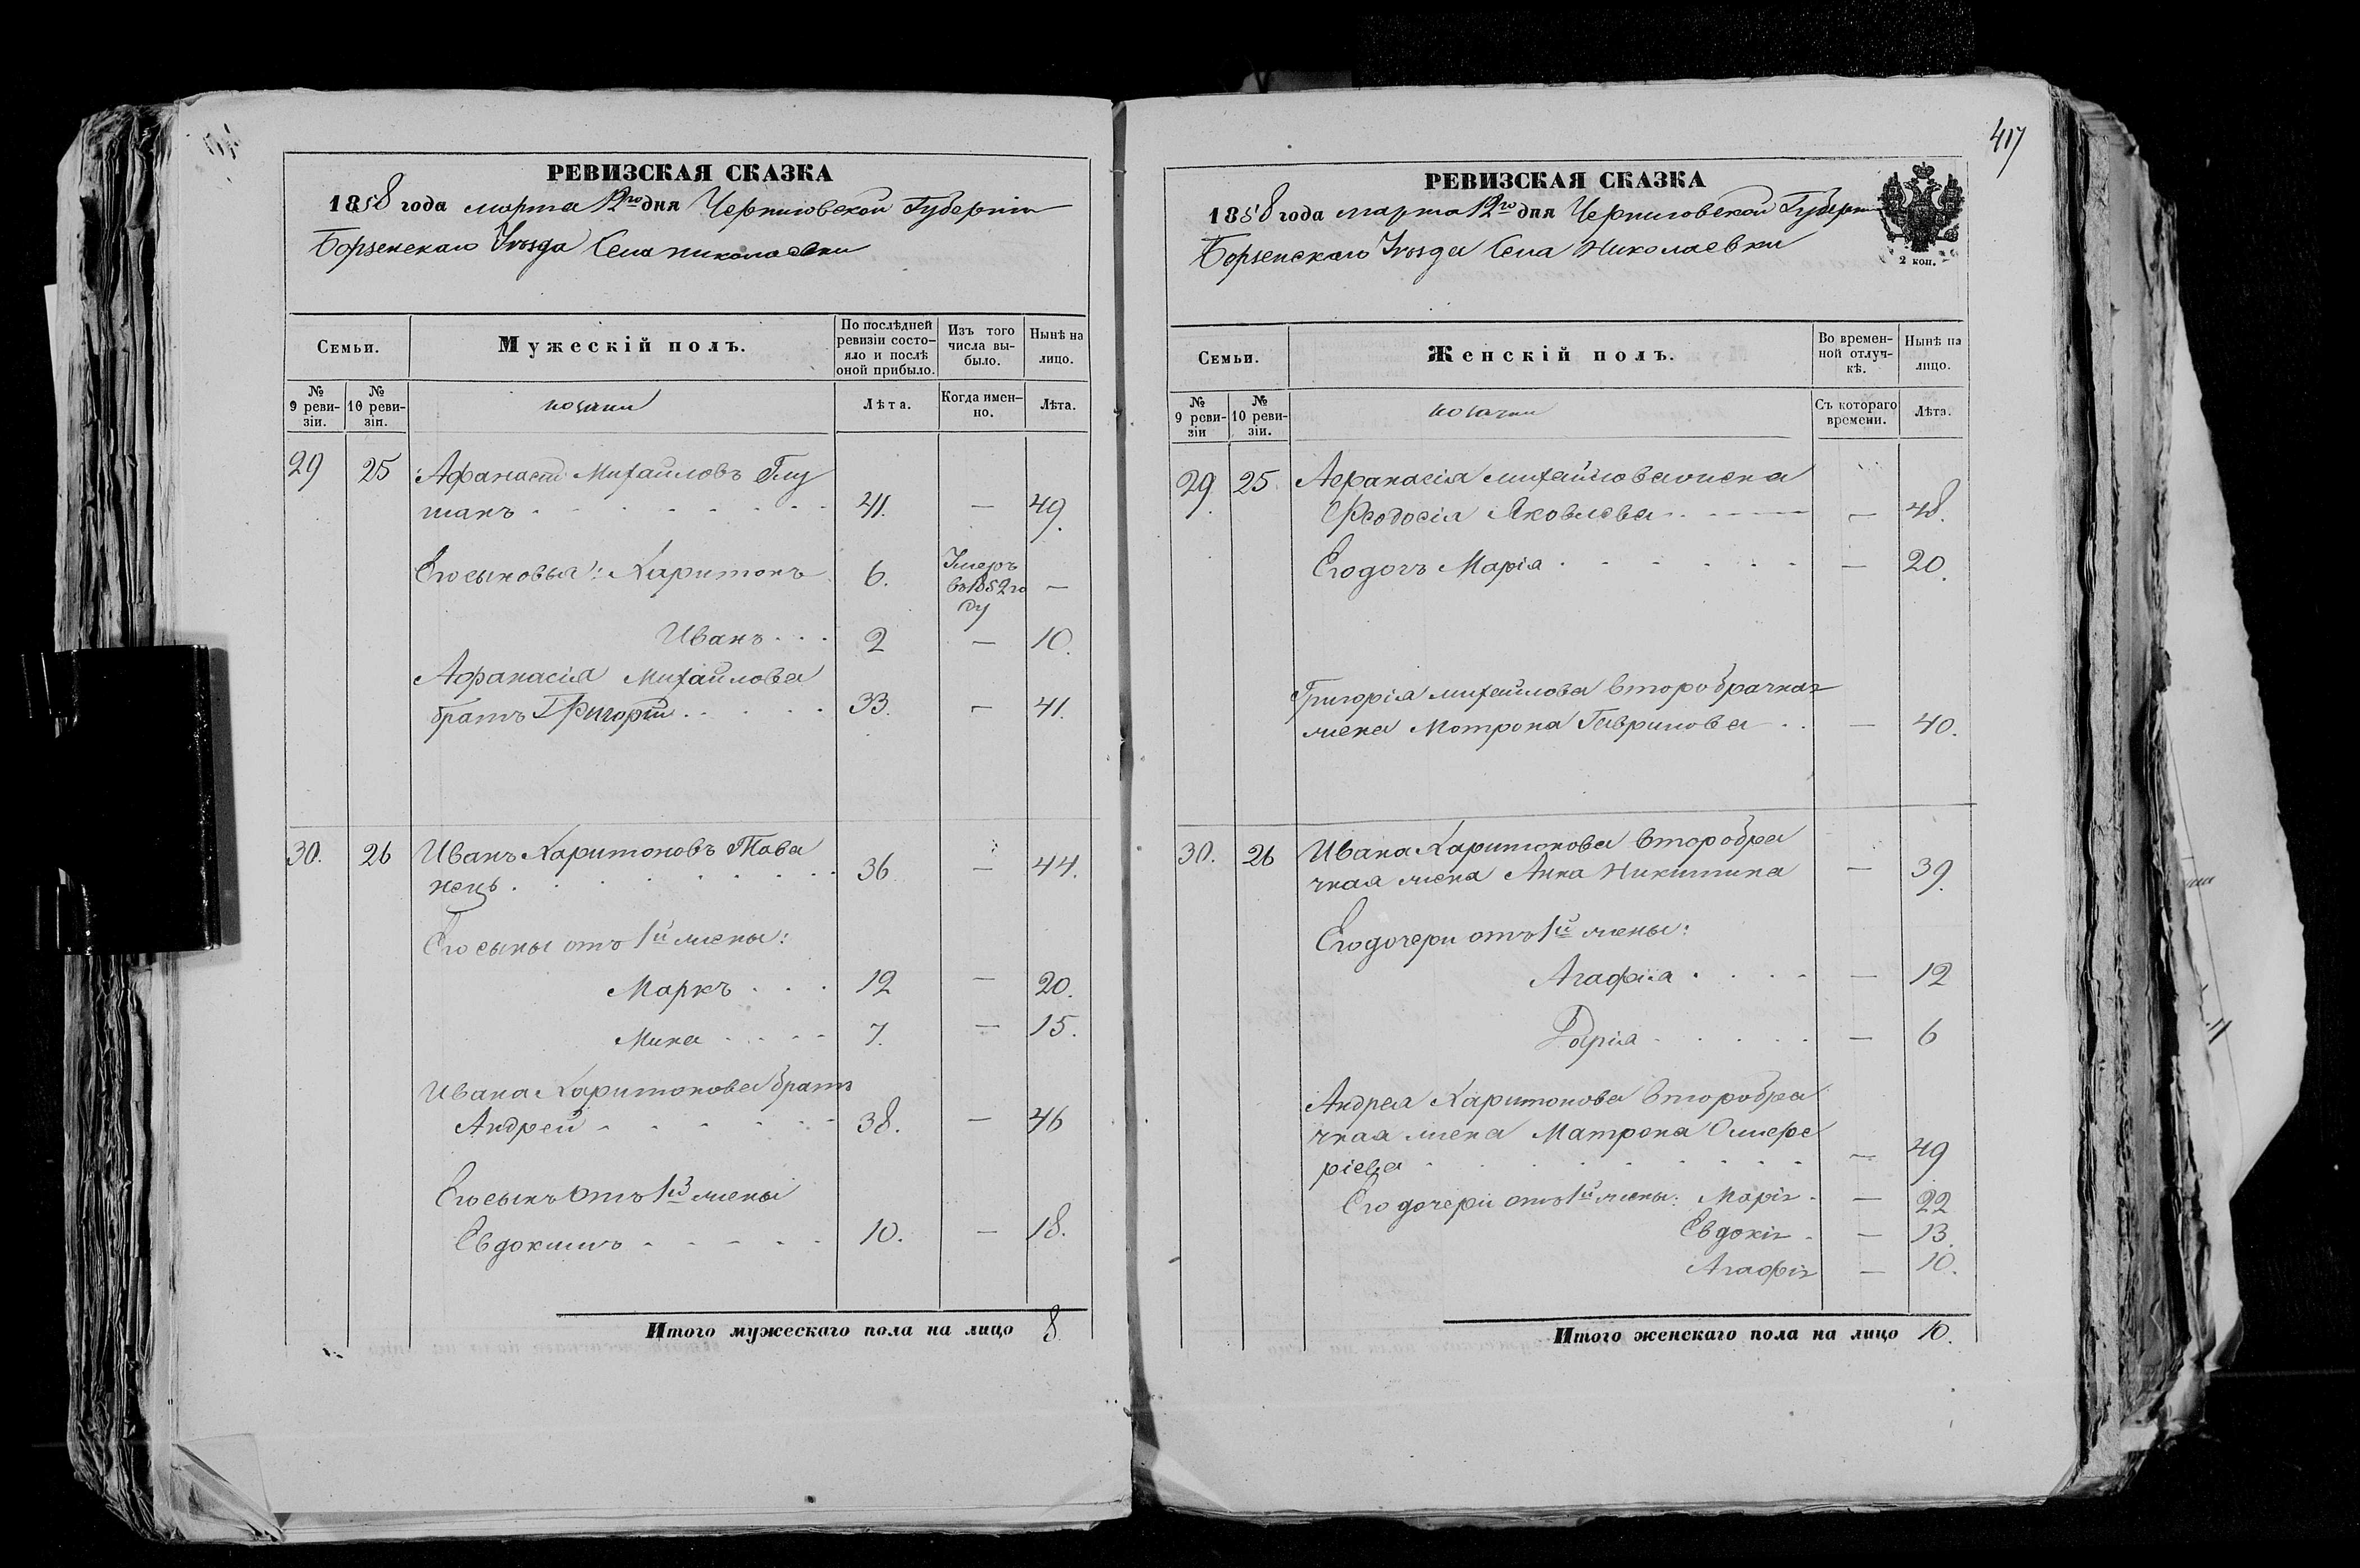 РЕВИЗСКАЯ СКАЗКА
1858 года марта 12го дня Черниговской Губерніи
Борзенскаго Уѣзда Села Николаевки
Семьи.
Мужескій полъ.
По послѣдней ревизіи состояло и послѣ оной прибыло.
Изъ того числа выбыло.
Нынѣ на лицо.
№ 9 ревизіи.
№ 10 ревизіи.
козаки
Лѣта.
Когда именно.
Лѣта.
29 25 Афанасій Михайловъ Глу
шакъ 41. — 49.
Его сыновья: Харитонъ 6. Умеръ въ 1852 го ду —
Иванъ 2 — 10.
Афанасія Михайлова
братъ Григорій 33. — 41.
30. 26 Иванъ Харитоновъ Тава
нецъ 36 — 44.
Его сыны отъ 1й жены:
Маркъ 12 — 20.
Мина 7. — 15.
Ивана Харитонова братъ
Андрей 38. — 46
Его сынъ отъ 1й жены
Евдокимъ 10. — 18.
Итого мужескаго пола на лицо 8
417
РЕВИЗСКАЯ СКАЗКА
1858 года марта 12го дня Черниговской Губерніи
Борзенскаго Уѣзда Села Николаевки
2 коп.
Семьи.
Женскій полъ.
Во временной отлучкѣ.
Нынѣ на лицо.
№ 9 ревизіи
№ 10 ревизіи.
козачки
Съ котораго времени.
Лѣта.
29. 25 Афанасія Михайлова жена
Феодосія Яковлева — 48.
Его дочь Марія — 20.
Григорія Михайлова второбрачная
жена Мотрона Гаврилова — 40.
30. 26 Ивана Харитонова второбра
чная жена Анна Никитина — 39.
Его дочери отъ 1й жены:
Агафія — 12
Дарія — 6
Андрея Харитонова второбра
чная жена Матрона
— 49
Его дочери отъ 1й жены: Марія — 22
Евдокія — 13.
Агафія — 10.
Итого женскаго пола на лицо 10.